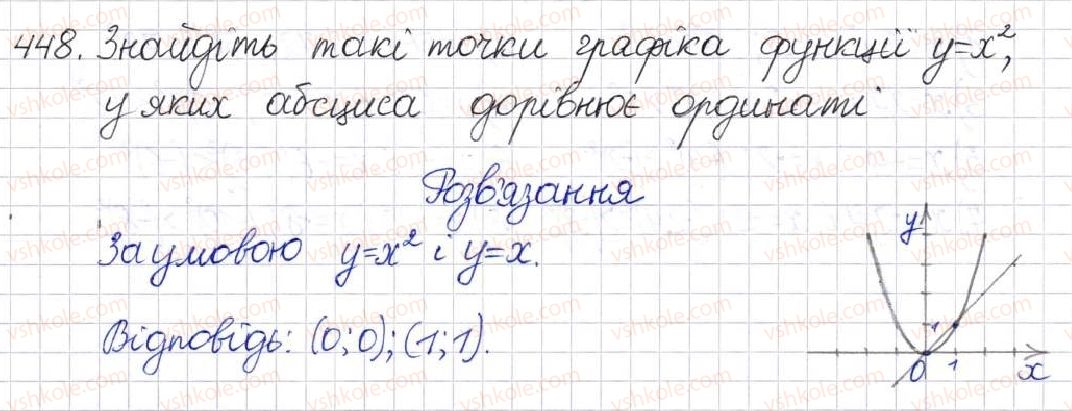 448. Знайдіть такі точки графіка функції y=x²,
у яких абсциса дорівнює ординаті
Розв'язання
За умовою y=x² і y=x.
Відповідь: (0;0); (1;1).
y
1
0 1 x
vshkole.com